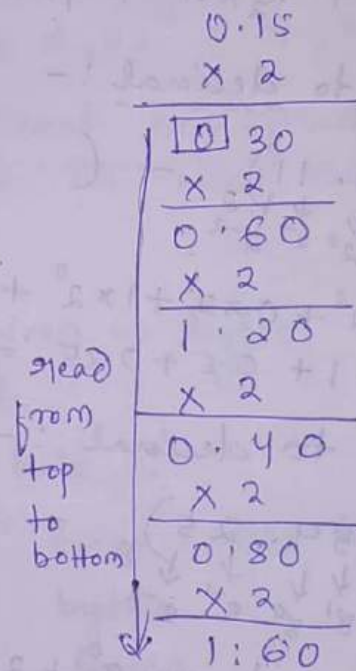 0.15
x 2
0 30
x 2
0.60
x 2
1.20
x 2
0.40
x 2
0.80
x 2
1:60
read
from
top
to
bottom